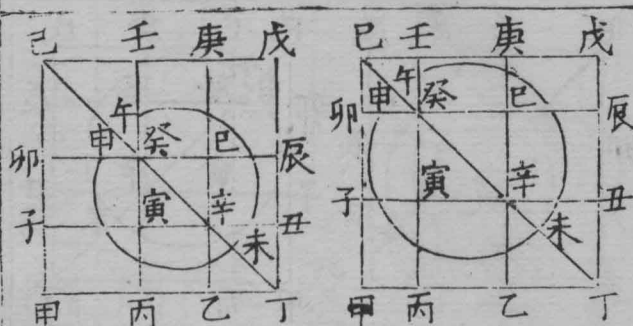 己 壬 庚 戊
午
申 癸 巳
卯 辰
寅 辛
子 丑
未
甲 丙 乙 丁
巳 壬 庚 戊
午
申 癸 巳
卯 辰
寅 辛
子 丑
未
甲 丙 乙 丁